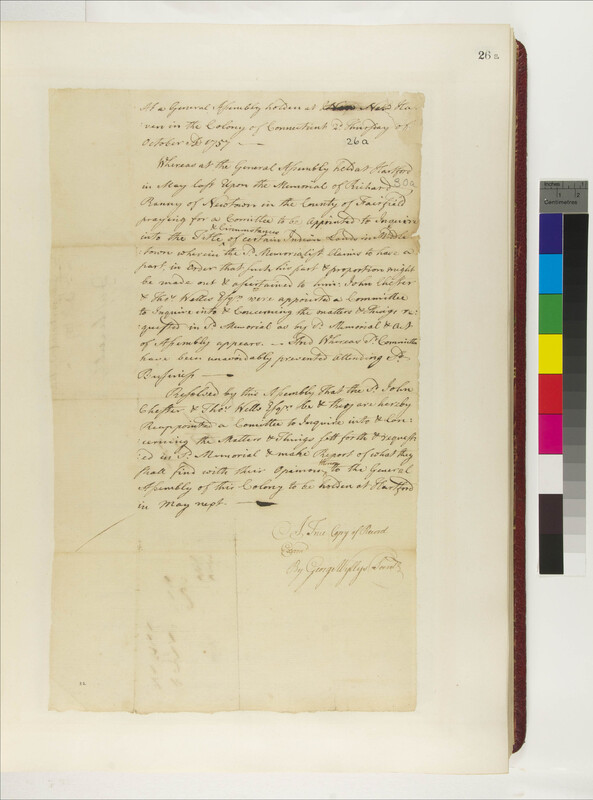 26 B.
At a General Assembly holden at New Ha-
ven in the Colony of Connecticut 2d. Thursday of
October AD 1757
26a
Whereas at the General Assembly held at Hartford
in May last Upon the Memorial of Richard
30a
Ranny of Newtown in the County of Fairfield
praying for a Comittee to be Appointed to Inquire
& Circumstances
into the Title of certain Indian Lands in Middle
town wherein the sd. Memorialist claims to have a
part, in Order that such his part & proportion might
be made out & assertained to him: John Chester
& Thos. Welles Esqrs. were appointed a Committee
to Inquire into & Concerning the matters & things re-
quested in sd. Memorial as by sd. Memorial & Act
of Assembly appears. And Whereas sd. Committee
have been unavoidably prevented attending sd.
Business
Resolved by this Assembly that the sd. John
Chester & Thos. Wells Esqrs. be & they are hereby
Reappointed a Comittee to Inquire into & Con-
cerning the Matters & Things sett forth & request-
ed in sd. Memorial & make Report of what they
shall find with their Opinion thereon to the General
Assembly of this Colony to be holden at Hartford
in May next.
A True Copy of Record
Examd.
By George Wyllys Secret.
Inches
1
2
Centimetres